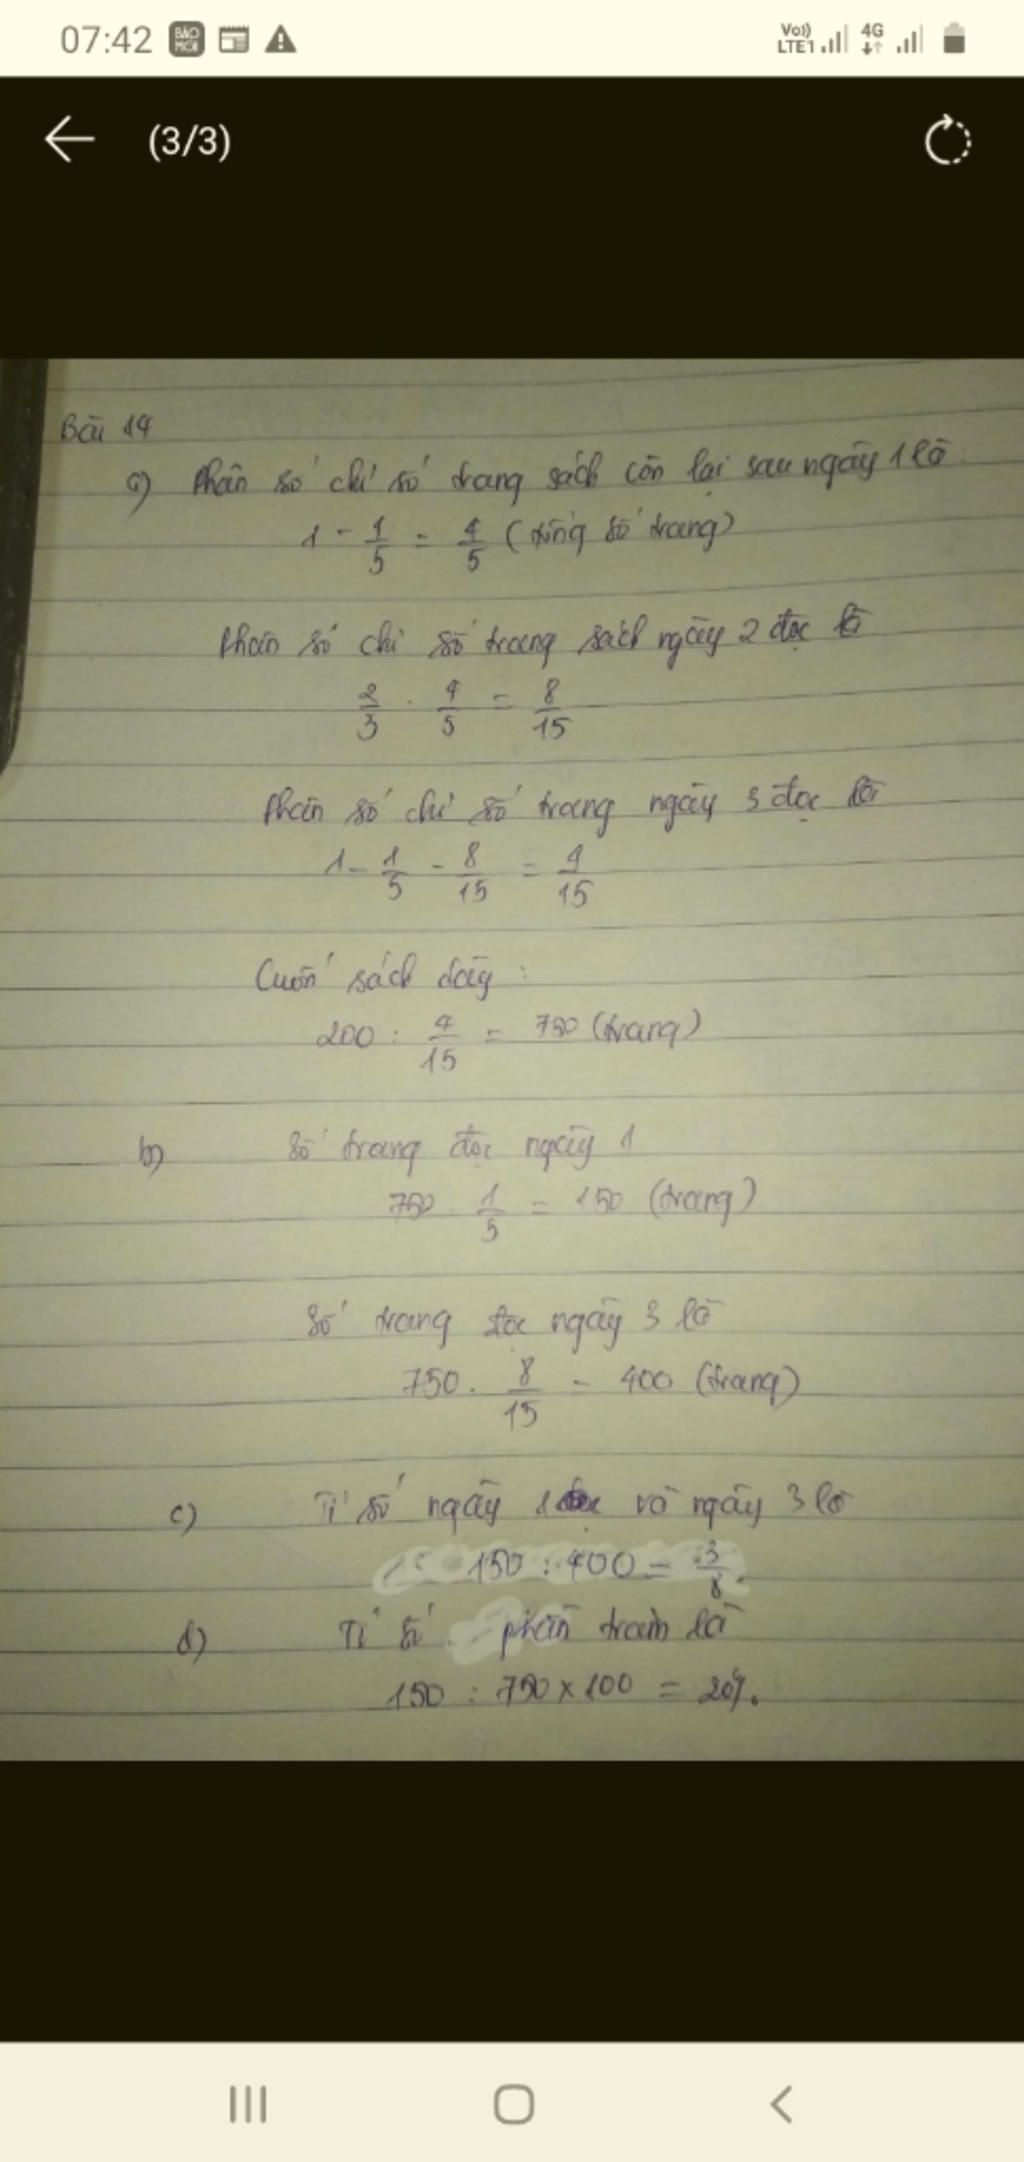 07:42 BÁO MỚI Vo)) LTE1 4G
(3/3)
Bài 14
a) Phân số chỉ số trang sách còn lại sau ngày 1 là
1 - 1/5 = 4/5 (tổng số trang)
Phân số chỉ số trang sách ngày 2 đọc là
2/3 . 4/5 = 8/15
Phân số chỉ số trang ngày 3 đọc là
1 - 1/5 - 8/15 = 4/15
Cuốn sách dày :
200 : 4/15 = 750 (trang)
b) Số trang đọc ngày 1
750 . 1/5 = 150 (trang)
Số trang đọc ngày 3 là
750 . 8/15 = 400 (trang)
c) Tỉ số ngày 1 và ngày 3 là
150 : 400 = 3/8.
d) Tỉ số phần trăm là
150 : 750 x 100 = 20%.